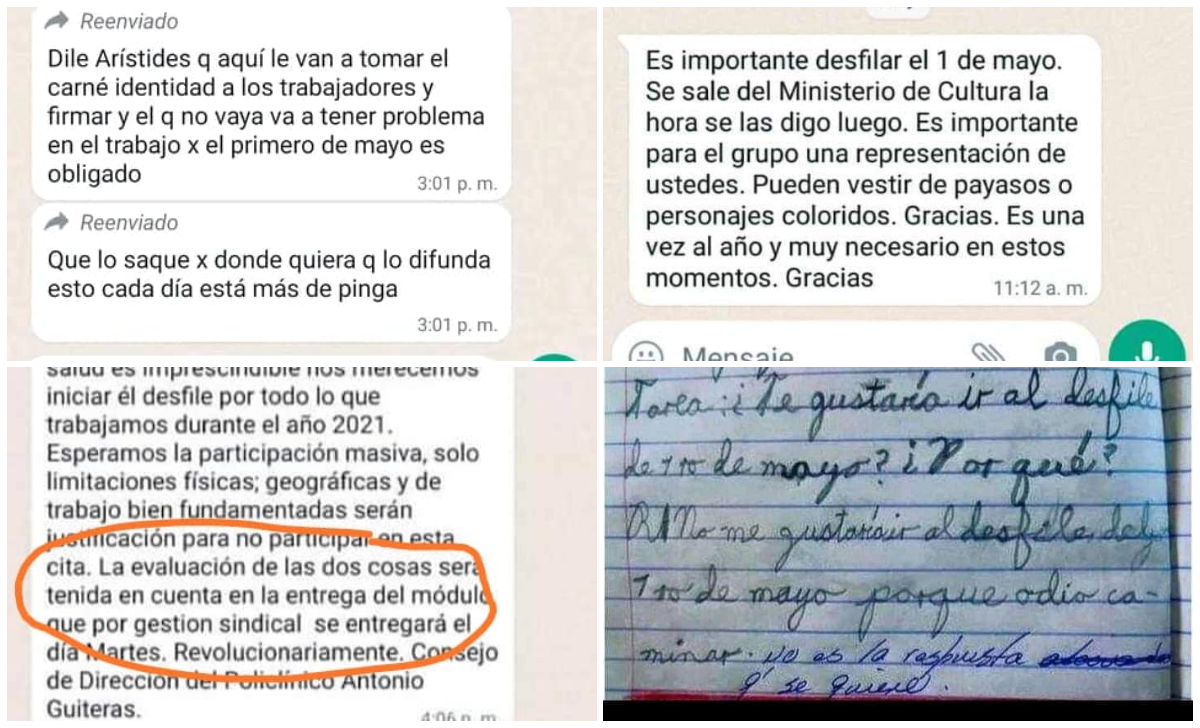 Reenviado
Dile Arístides q aquí le van a tomar el
carné identidad a los trabajadores y
firmar y el q no vaya va a tener problema
en el trabajo x el primero de mayo es
obligado
3:01 p. m.
Reenviado
Que lo saque x donde quiera q lo difunda
esto cada día está más de pinga
3:01 p. m.
Es importante desfilar el 1 de mayo.
Se sale del Ministerio de Cultura la
hora se las digo luego. Es importante
para el grupo una representación de
ustedes. Pueden vestir de payasos o
personajes coloridos. Gracias. Es una
vez al año y muy necesario en estos
momentos. Gracias
11:12 a. m.
Mensaje
salud es imprescindible nos merecemos
iniciar él desfile por todo lo que
trabajamos durante el año 2021.
Esperamos la participación masiva, solo
limitaciones físicas; geográficas y de
trabajo bien fundamentadas serán
justificación para no participar en esta
cita. La evaluación de las dos cosas será
tenida en cuenta en la entrega del módulo
que por gestion sindical se entregará el
día Martes. Revolucionariamente. Consejo
de Dirección del Policlínico Antonio
Guiteras.
4:06 p. m.
Tarea: ¿Te gustaría ir al desfile
de 1ro de mayo? ¿Por qué?
R/ No me gustaría ir al desfile del
1ro de mayo porque odio ca-
minar. no es la respuesta
q' se quiere.